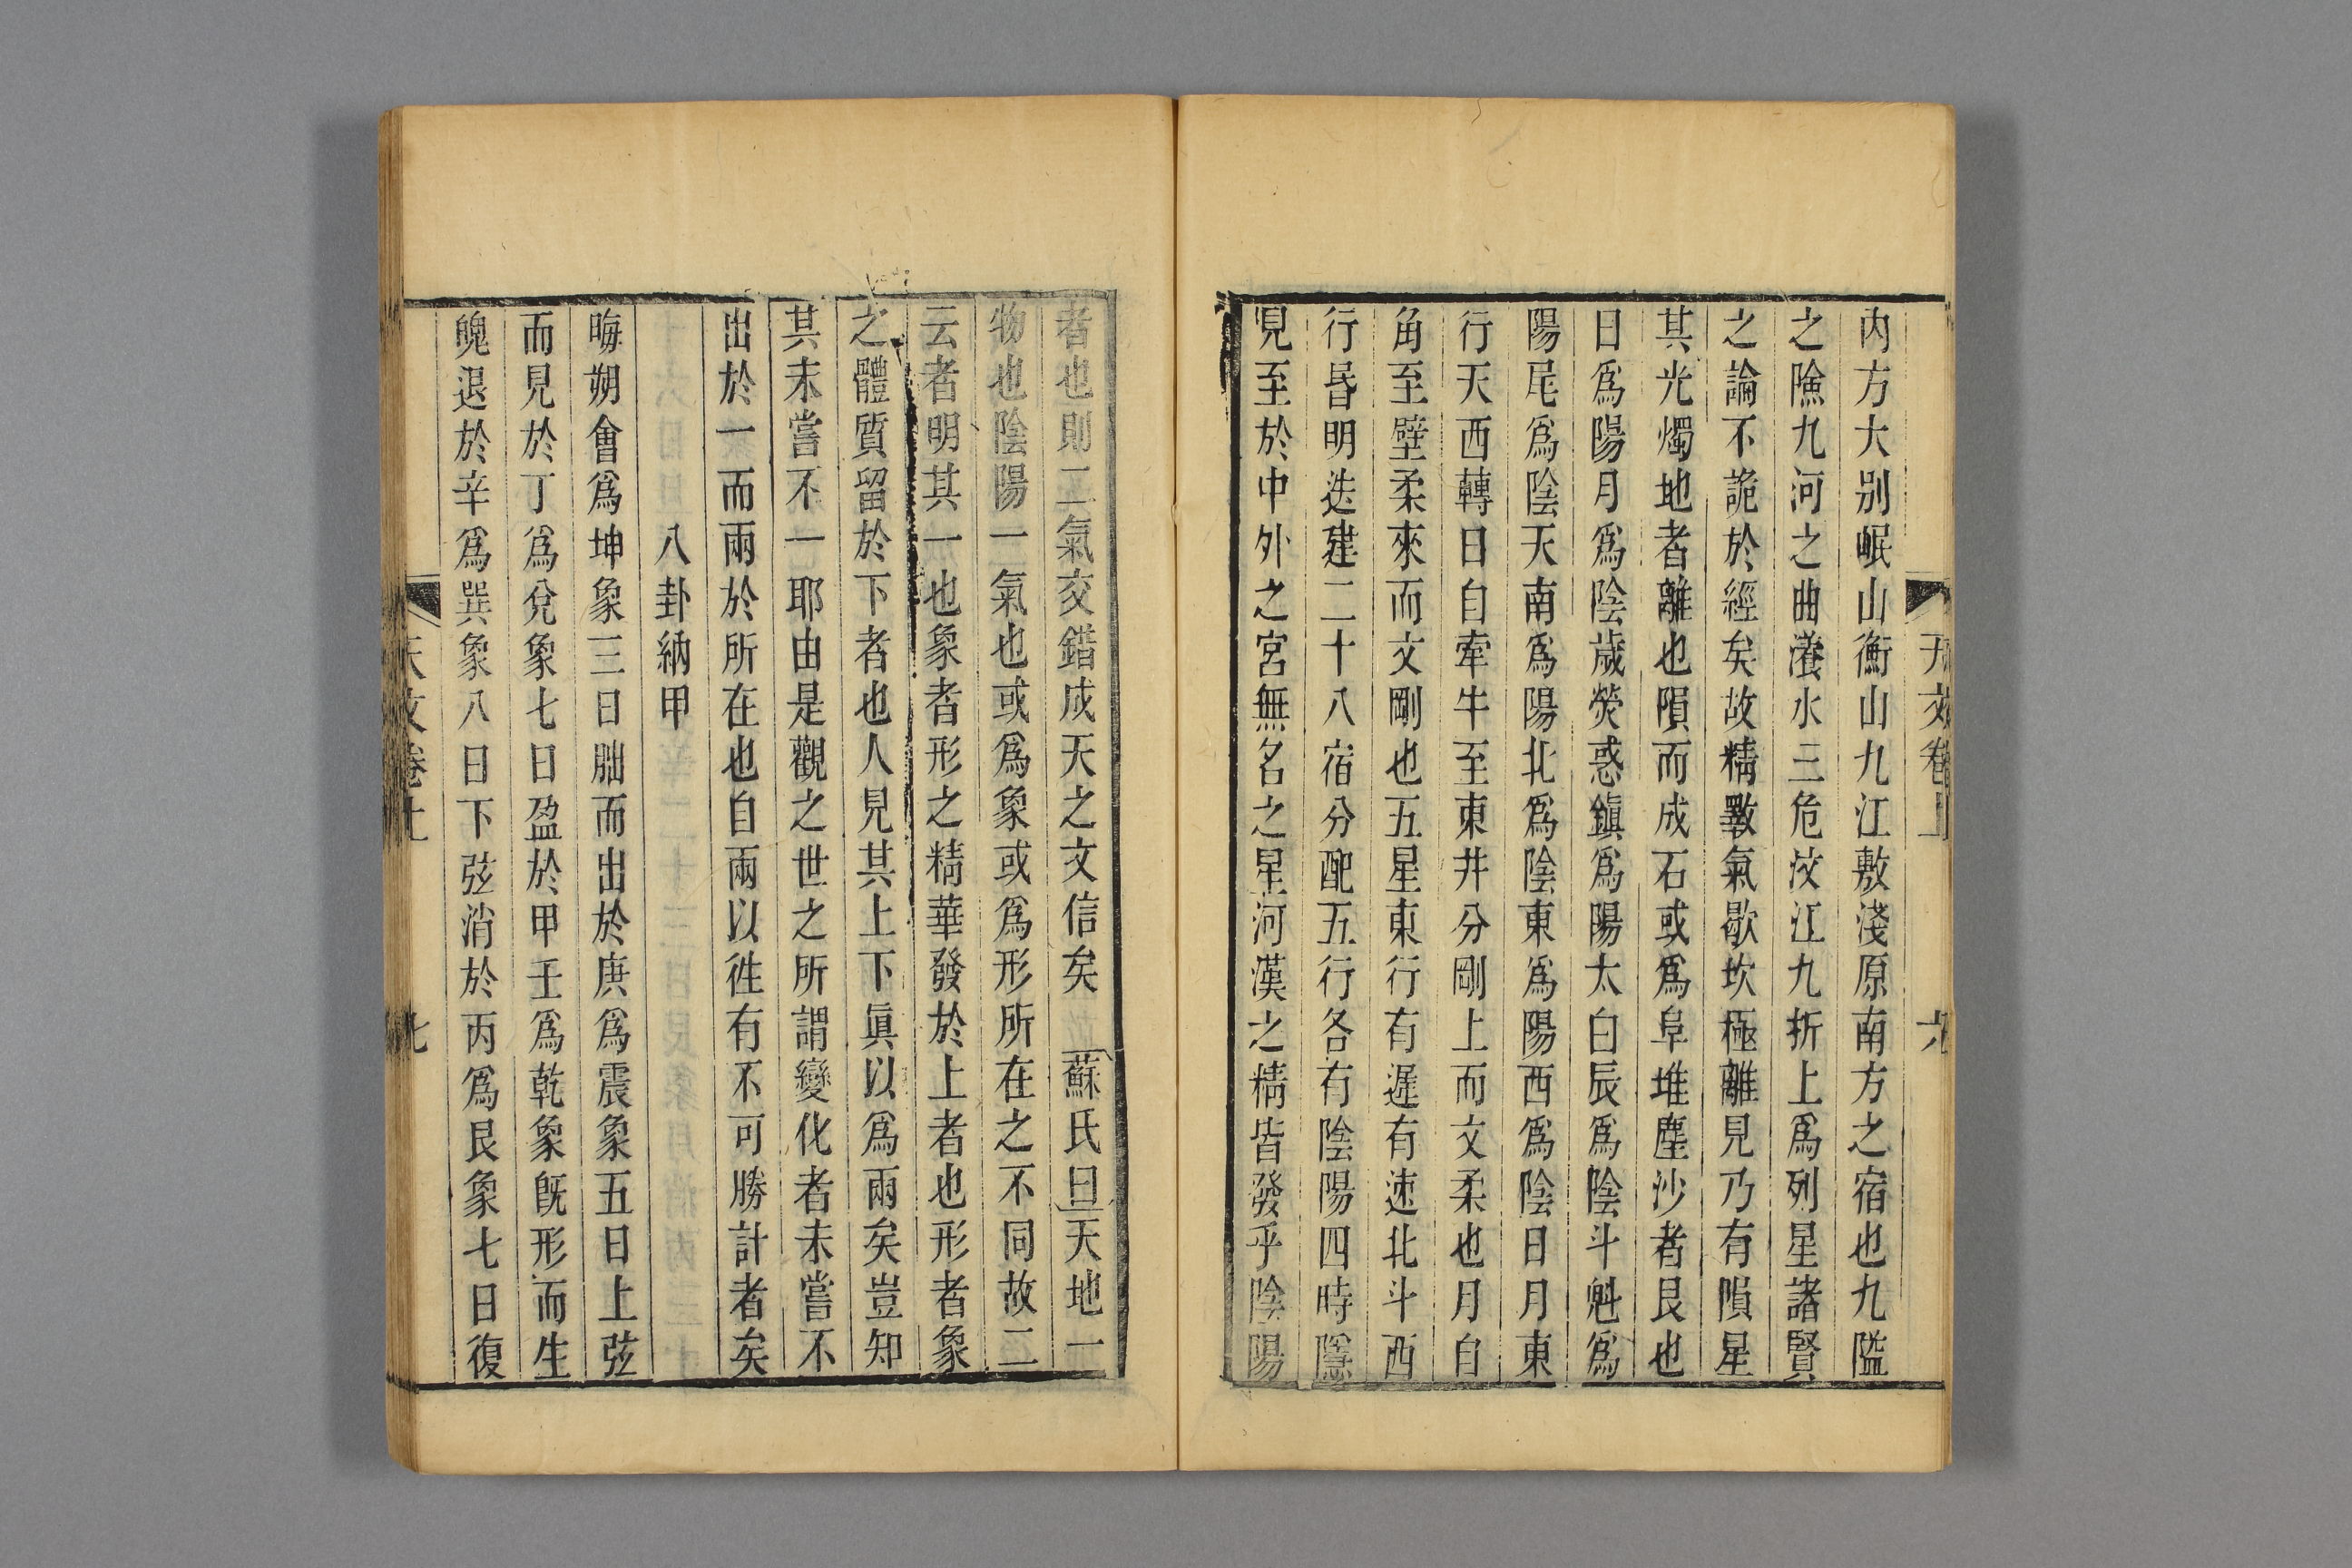 天文卷上 六
內方大别岷山衡山九江敷淺原南方之宿也九隘
之險九河之曲瀁水三危汶江九折上爲列星諸賢
之論不詭於經矣故精斁氣歇坎極離見乃有隕星
其光燭地者離也隕而成石或爲阜堆塵沙者艮也
日爲陽月爲陰歲熒惑鎭爲陽太白辰爲陰斗魁爲
陽尾爲陰天南爲陽北爲陰東爲陽西爲陰日月東
行天西轉日自牽牛至東井分剛上而文柔也月自
角至壁柔來而文剛也五星東行有遲有速北斗西
行昬明迭建二十八宿分配五行各有陰陽四時隱
見至於中外之宮無名之星河漢之精皆發乎陰陽
者也則二氣交錯成天之文信矣 蘇氏曰天地一
物也陰陽一氣也或爲象或爲形所在之不同故二
云者明其一也象者形之精華發於上者也形者象
之體質留於下者也人見其上下眞以爲兩矣豈知
其未嘗不一耶由是觀之世之所謂變化者未嘗不
出於一而兩於所在也自兩以徃有不可勝計者矣
八卦納甲
晦朔會爲坤象三日朏而出於庚爲震象五日上弦
而見於丁爲兌象七日盈於甲壬爲乾象旣形而生
魄退於辛爲巽象八日下弦消於丙爲艮象七日復
天文卷上 七